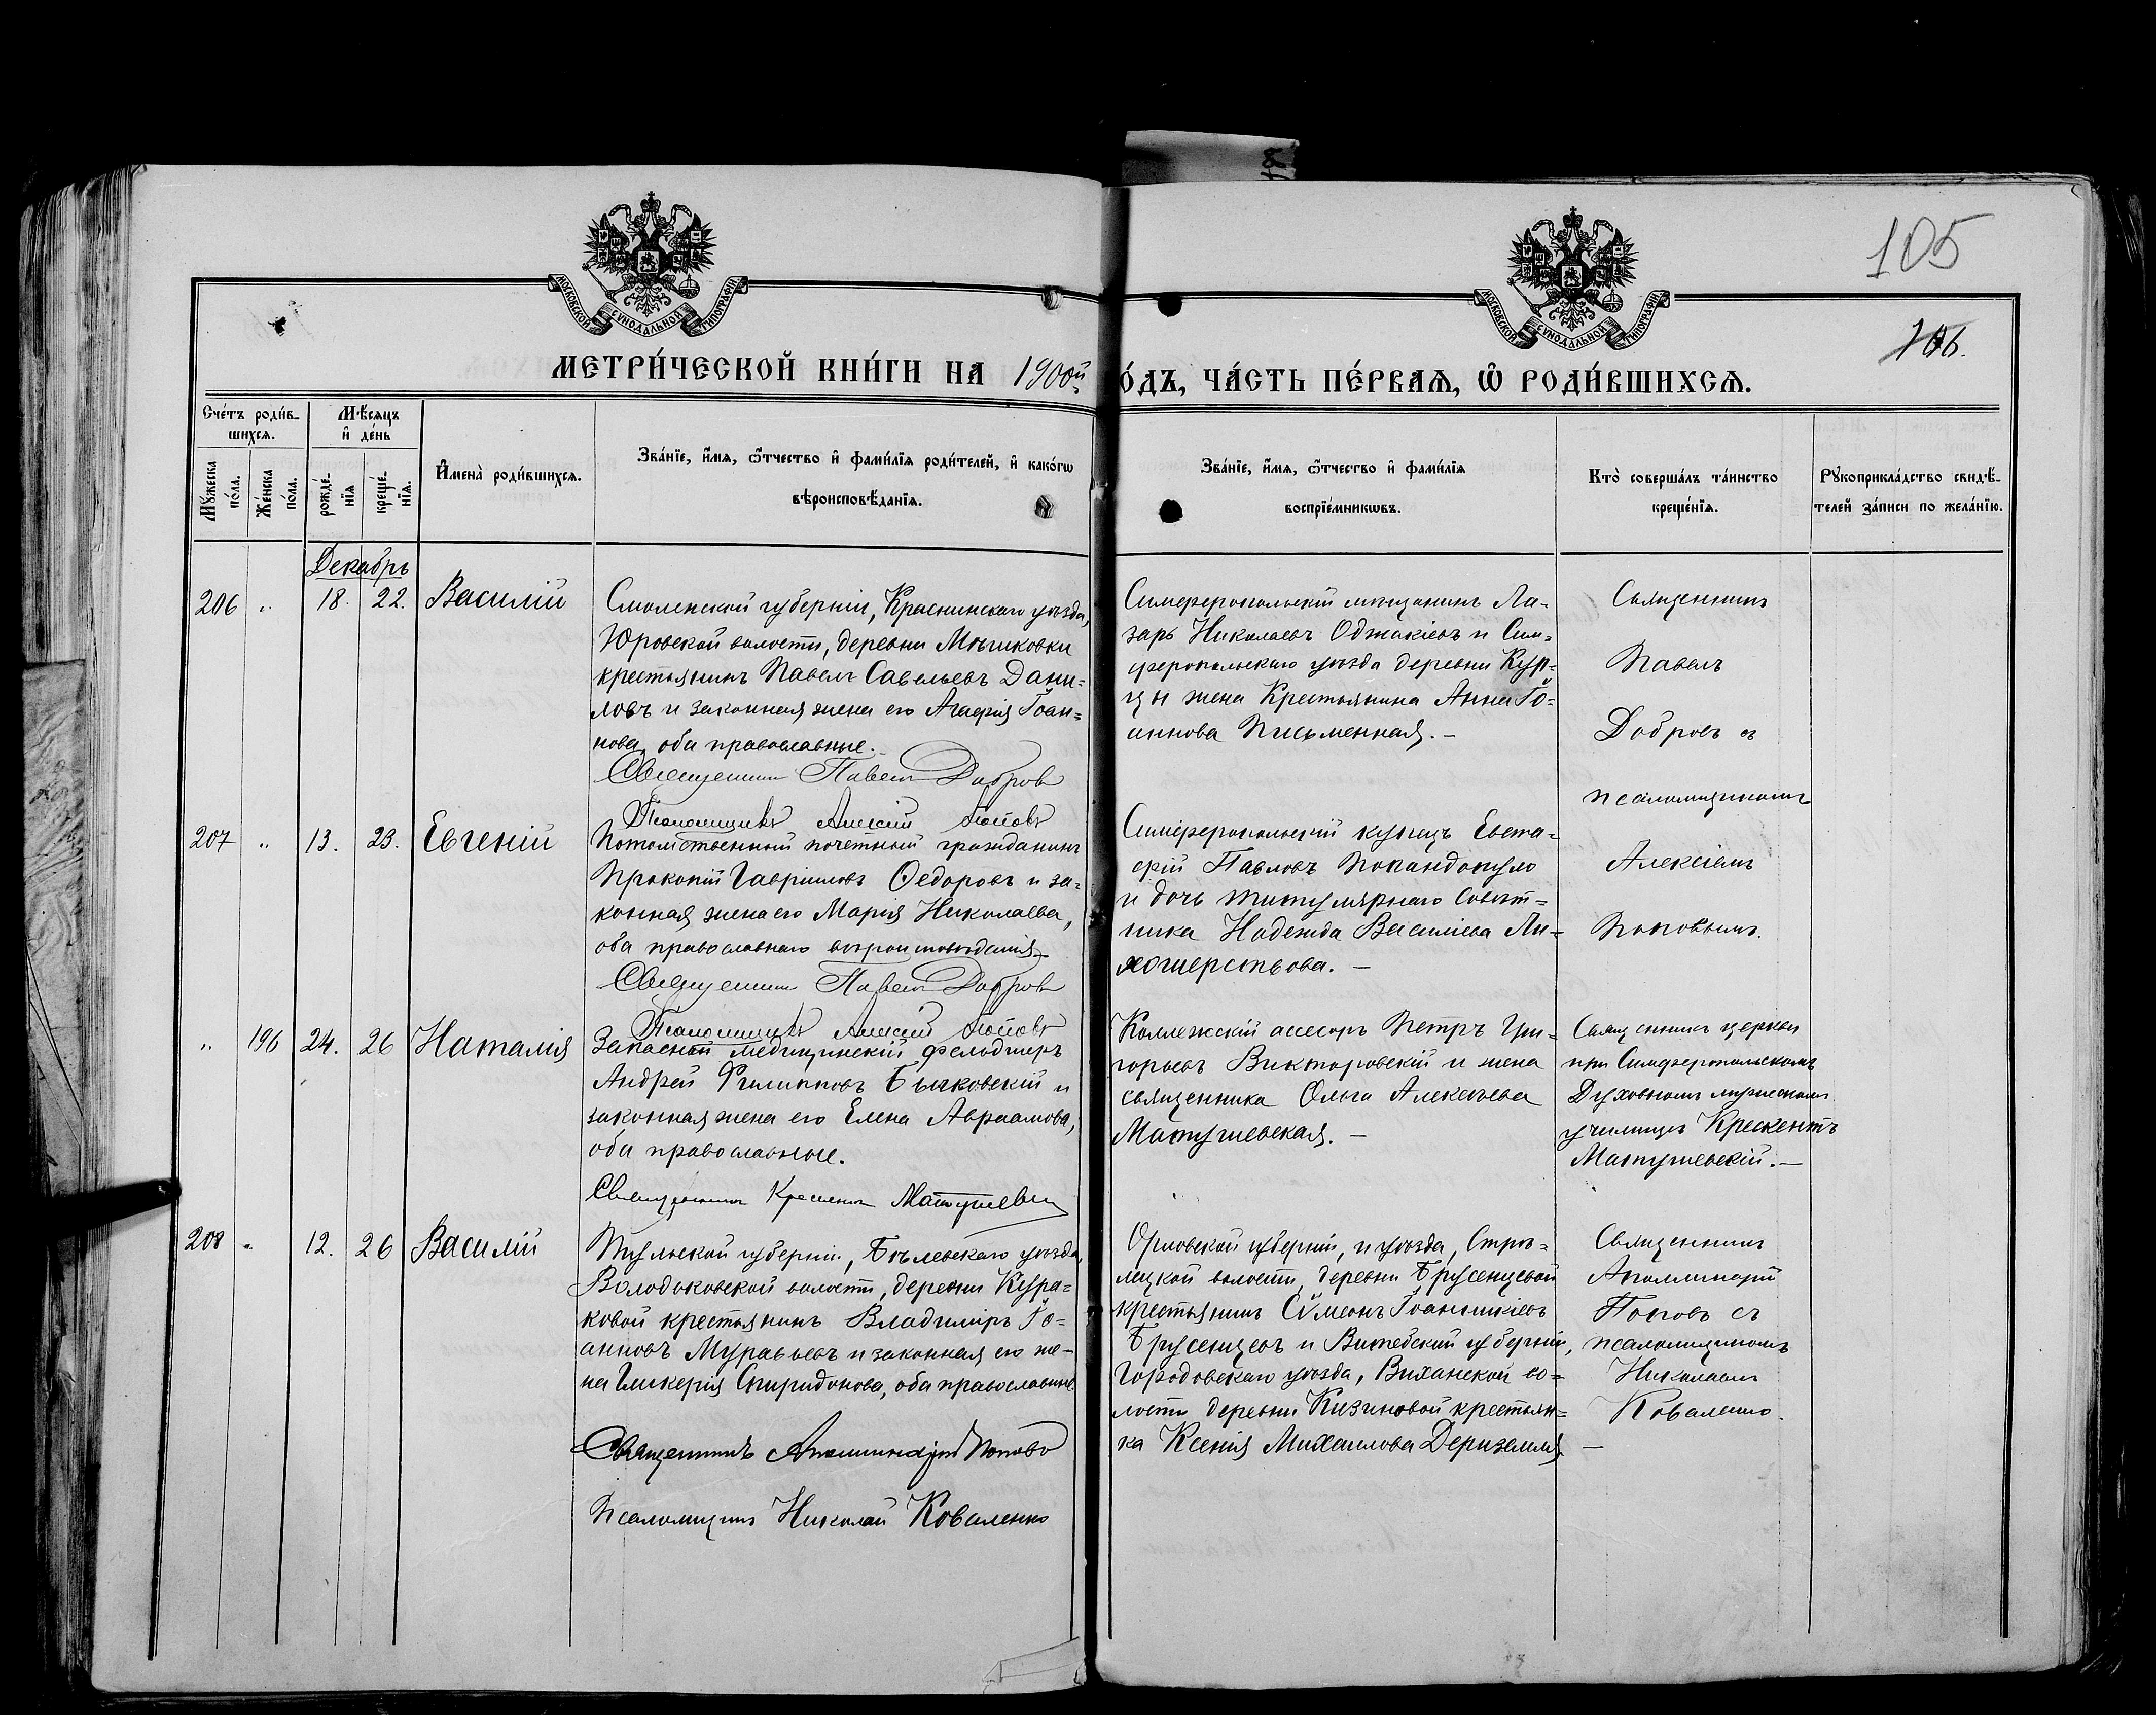 105
106.
МОСКОВСКОЙ СѴНОДАЛЬНОЙ ТИПОГРАФІИ.
МОСКОВСКОЙ СѴНОДАЛЬНОЙ ТИПОГРАФІИ.
МЕТРИ́ЧЕСКОЙ КНИ́ГИ НА 1900й
О́ДЪ, ЧА́СТЬ ПЕ́РВАѦ, Ѡ҆ РОДИ́ВШИХСѦ.
Сче́тъ роди́в-
шихсѧ.
Мꙋжеска
по́ла.
Же́нска
по́ла.
Мѣ́сяцъ
и҆ де́нь
рожде́-
нїѧ
креще́-
нїѧ.
И҆мена̀ роди́вшихсѧ.
Зва́нїе, и҆́мѧ, ѻ҆́тчество и҆ фами́лїѧ роди́телей, и҆ како́гѡ
вѣроисповѣ́данїѧ.
Зва́нїе, и҆́мѧ, ѻ҆́тчество и҆ фами́лїѧ
воспрїе́мникѡвъ.
Кто̀ соверша́лъ та́инство
креще́нїѧ.
Рꙋкоприкла́дство свидѣ́-
телей за́писи по жела́нїю.
Декабрь
206 " 18. 22. Василій
Смоленской губерніи, Краснинскаго уѣзда,
Юровской волости, деревни
крестьянинъ Павелъ Савельевъ Дани-
ловъ и законная жена его Агафія Іоан-
нова, оба православные.
Священникъ Павелъ Добровъ
Псаломщикъ Алексій Поповъ
Симферопольскій мѣщанинъ Ла-
зарь Николаевъ Оджакіевъ и Сим-
феропольскаго уѣзда деревни Кур-
цы жена Крестьянина Анна Іо-
аннова Письменная. -
Священникъ
Павелъ
Добровъ съ
псаломщикомъ
Алексіемъ
Поповымъ.
207 " 13. 23. Евгеній
Потомственный почетный гражданинъ
Прокопій Гавріиловъ Ѳедоровъ и за-
конная жена его Марія Николаева,
оба православнаго вѣроисповѣданія
Священникъ Павелъ Добровъ
Псаломщикъ Алексій Поповъ
Симферопольскій купецъ Евста-
фій Павловъ Попандопуло
и дочь титулярнаго Совѣт-
ника Надежда Василіева Ли-
хошерстова. -
" 196 24. 26 Наталія
Запасный медицинскій фельдшеръ
Андрей Филипповъ Бычковскій и
законная жена его Елена Авраамова,
оба православные.
Священникъ Крескентъ Матушевскій
Коллежскій ассесоръ Петръ Гри-
горьевъ Викторовскій и жена
священника Ольга Алексѣева
Матушевская. -
Священникъ церкви
при Симферопольскомъ
Духовномъ мужескомъ
училищѣ Крескентъ
Матушевскій. -
208 " 12. 26 Василій
Тульской губерніи, Бѣлевскаго уѣзда,
Володьковской волости, деревни Кура-
ковой крестьянинъ Владиміръ Іо-
анновъ Муравьевъ и законная его же-
на Гликерія Спиридонова, оба православные.
Священникъ Аполлинарій Поповъ
Псаломщикъ Николай Коваленко
Орловской губерніи, и уѣзда, Стрѣ-
лецкой волости, деревни Брусенцевой
крестьянинъ Сѵмеонъ Іоанникіевъ
Брусенцевъ и Витебской губерніи,
Городовскаго уѣзда, Виханской во-
лости деревни Кизиновой крестьян-
ка Ксенія Михаилова Дериземля.
Священникъ
Аполлинарій
Поповъ съ
псаломщикомъ
Николаемъ
Коваленко.
-